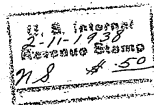 U. S. Internal
2-11-1938
Revenue Stamp
N S $ .50